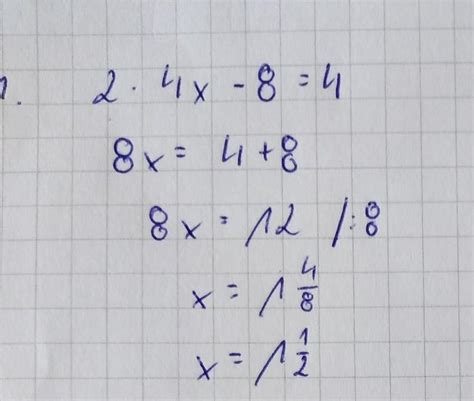 1. 2 · 4x - 8 = 4
8x = 4 + 8
8x = 12 /:8
x = 1 4/8
x = 1 1/2